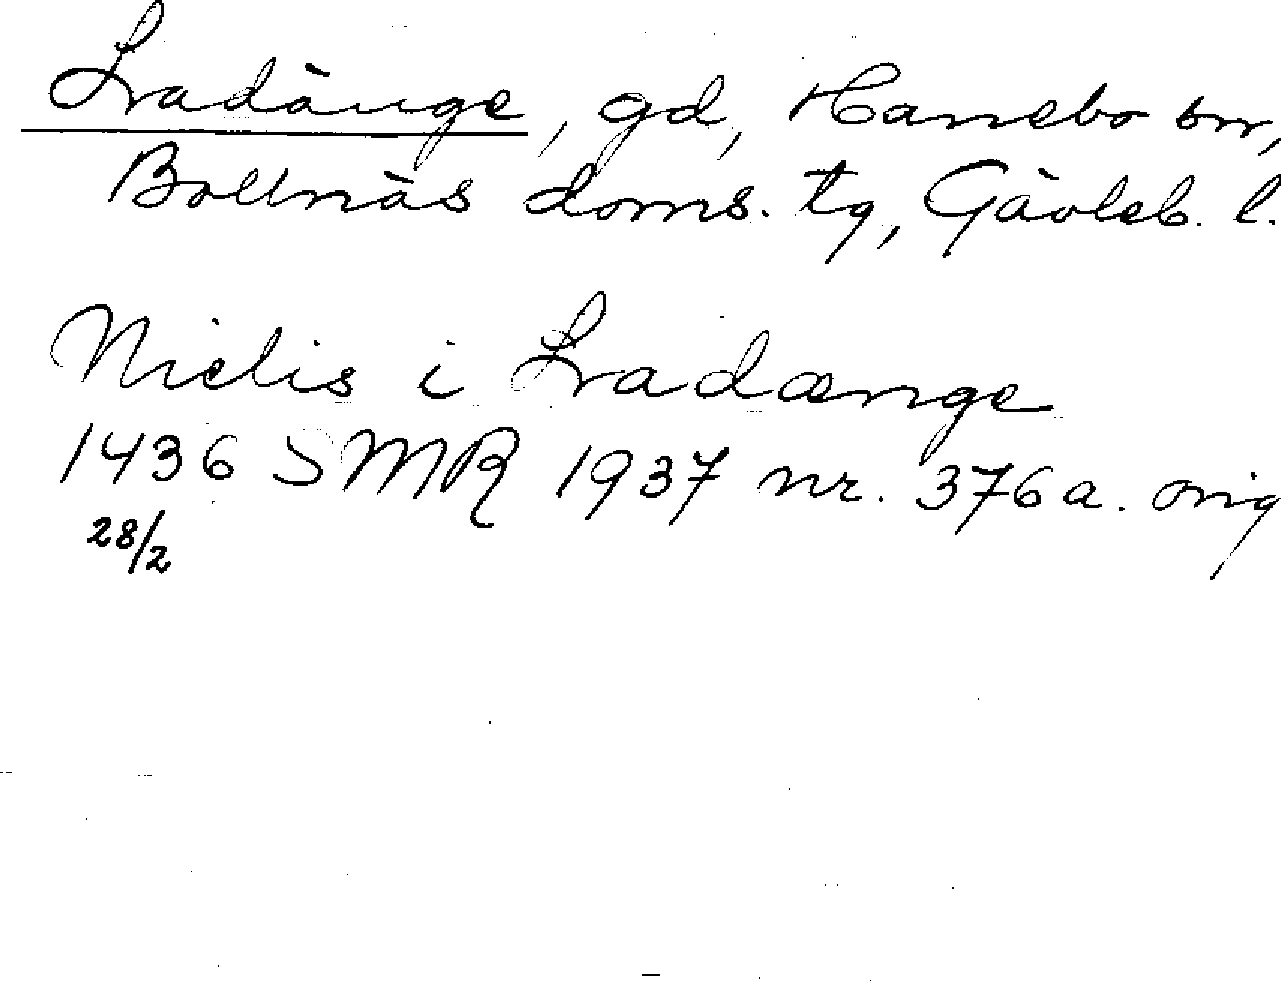 Svadänge, gd, Hanebo sn,
Bollnäs doms. tg, Gävleb. l.
Nielis i Svadænge
1436 SMR 1937 nr. 376a. orig
28/2